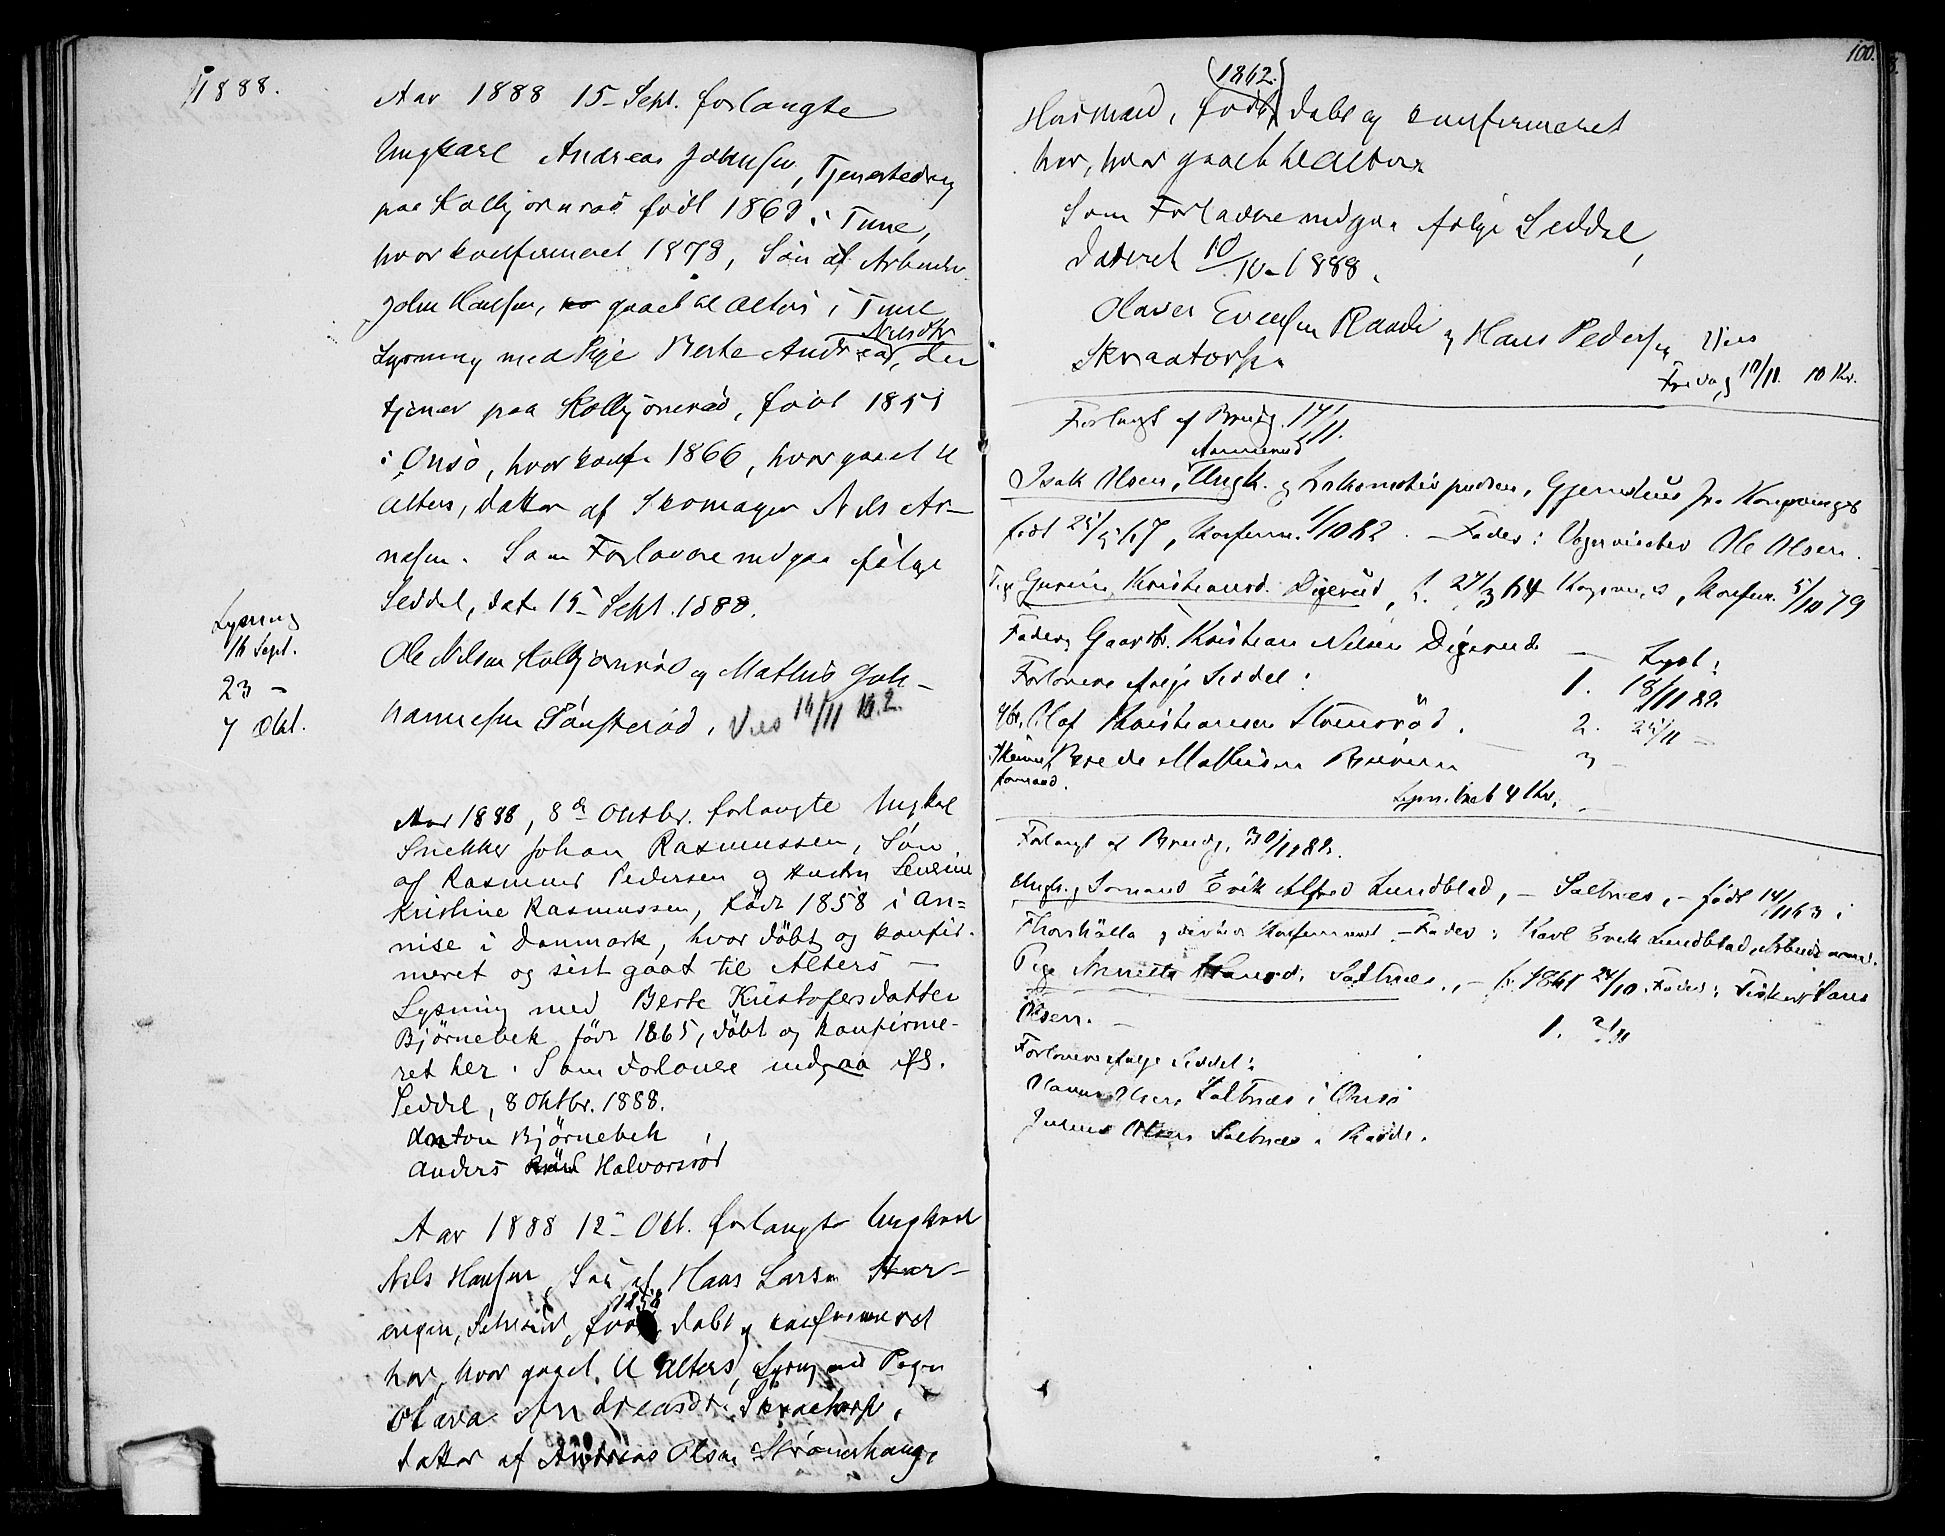 1888.
Aar 1888 15 Sept. forlangte
Ungkarl Andreas Johnsen, Tjenestedreng
paa Kolbjørnrød født 186 i Tune,
hvor konfirmeret 1878, Søn af Arbeider
John Hansen, gaaet til Alters i Tune
Lysning med Pige Berte Andrea Nilsdtr, der
tjener paa Kolbjørnrød, født 1851
i Onsø, hvor konf. 1866, hvor gaaet til
Alters, datter af Skomager Nils Ar-
nesen. Som Forlovere undgaa følge
Seddel, dat. 15 Sept. 1888.
Ole Nilsen Kolbjørnrød og Mathis Joh-
annesen Tønsterød. Vies 16/11 Kl. 2.
Lysning
16 Sept.
23 -
7 Okt.
Aar 1888, 8de Oktbr. forlangte Ungkarl
Snekker Johan Rasmussen, Søn
af Rasmus Pedersen og Hustru Severine
Kristine Rasmussen, født 1858 i An=
nise i Danmark, hvor döbt og konfir-
meret og sist gaat til Alters -
Lysning med Berte Kristofersdatter
Björnebek født 1865, döbt og konfirme-
ret her. Som Forlovere undgaa ifl.
Seddel, 8 Oktbr. 1888.
Anton Björnebek
Anders Halvorsröd
Aar 1888 12 Okt. forlangte Ungkarl
Nils Hansen, Søn af Hans Larsen
engen, født 1858, døbt og konfirmeret
her, hvor gaaet til Alters, Lysning med Pigen
Olava Andreasdtr. Skraatorp,
datter af Andreas Olsen Strømshaug,
100.
Husmand, født (1862.) døbt og konfirmeret
her, hvor gaaet til Alters.
Som Forlovere undgaa følge Seddel,
dateret 10/10 1888.
Olaves Evensen Raade og Hans Pedersen
Skraatorp. Vies
Fredag 17/11. 10 Kr.
Forlangt af Brudg. 17/11.
Isak Olsen, Aannerud Ungk. og Lokomotivpudser, Gjenstuen fra Kongsvinger
født 25/5 67, Konfirm. 1/10 82. - Fader: Vognvisiteur Ole Olsen.
Pige Gurine Kristiansd. Digerud, f. 27/3 64 Kongsvinger, Konfirm. 5/10 79
Fader, Gaardbr. Kristian Nilsen Digerud - Lyst:
Forlovere ifølge Seddel: 1. 18/11 88
Gbr. Olaf Kristiansen Stensrød. 2. 25/11 -
Bede Mathisen 3 -
formand. Lysn. bet 4 Kr.
Forlangt af Brudg. 30/11 88.
Ungk. og Sømand Erik Alfred Lundblad, - Saltnes, - født 14/11 63 i
Thorskälla og derinde Konfirmeret - Fader: Karl Erik Lundblad, Arbeidsmand.
Pige Annette Hansd. Saltnes, - f. 1861 24/10. Fader: Fisker Hans
Olsen. - 1. 2/11
Forlovere ifølge Seddel:
Hans Olsen Saltnes i Onsø
Julius Olsen Saltnes i Raade.